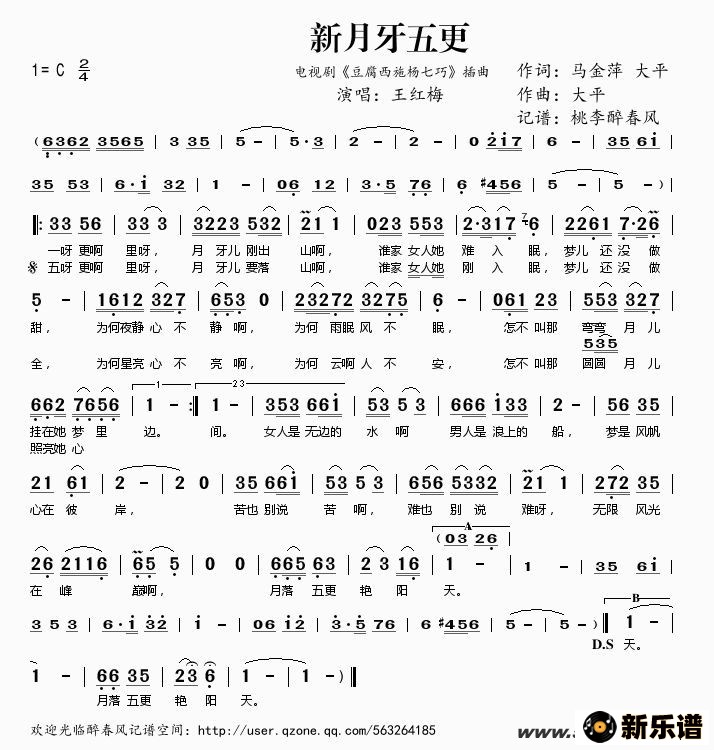 新月牙五更
1= C 2/4
电视剧《豆腐西施杨七巧》插曲
作词：马金萍 大平
演唱：王红梅
作曲：大平
记谱：桃李醉春风
( 6362 3565 | 35 35 | 5 - | 5· 3 | 2 - | 2 - | 0 217 | 6 - | 35 6i |
35 53 | 6·i 32 | 1 - | 06 12 | 3·5 76 | 6 #456 | 5 - | 5 - ) |
33 56 | 33 3 | 3223 532 | 21 1 | 023 553 | 2·317 6 | 2261 7·26 |
一呀 更啊 里呀， 月 牙儿 刚出 山啊， 谁家 女人她 难 入 眠， 梦儿 还 没 做
五呀 更啊 里呀， 月 牙儿 要落 山啊， 谁家 女人她 刚 入 眠， 梦儿 还 没 做
5 - | 1612 327 | 653 0 | 23272 3275 | 6 - | 061 23 | 553 327 |
甜， 为何夜静 心 不 静 啊， 为何 雨眠 风 不 眠， 怎不 叫那 弯弯 月 儿
535
全， 为何星亮 心 不 亮 啊， 为何 云啊 人 不 安， 怎不 叫那 圆圆 月 儿
1
23
662 7656 | 1 - :| 1 - | 353 66i | 53 5 3 | 666 i33 | 2 - | 56 35 |
挂在她 梦 里 边。 间。 女人是 无边的 水 啊 男人是 浪上的 船， 梦是 风帆
照亮她 心
21 61 | 2 - | 2 - | 2 0 | 35 66i | 53 5 3 | 656 5332 | 21 1 | 272 35 |
心在 彼 岸， 苦也 别说 苦 啊， 难也 别 说 难呀， 无限 风光
A
( 03 26 )
26 2116 | 65 5 | 0 0 | 665 63 | 2 3 16 | 1 - | 1 - | 35 6i |
在 峰 巅啊， 月落 五更 艳 阳 天。
B
35 3 53 | 6·i 32 | i - | 06 12 | 3·5 76 | 6 #456 | 5 - | 5 - ) | 1 - |
D.S 天。
1 - | 66 35 | 23 6 | 1 - | 1 - ) ||
月落 五更 艳 阳 天。
欢迎光临醉春风记谱空间：http://user.qzone.qq.com/563264185
新乐谱